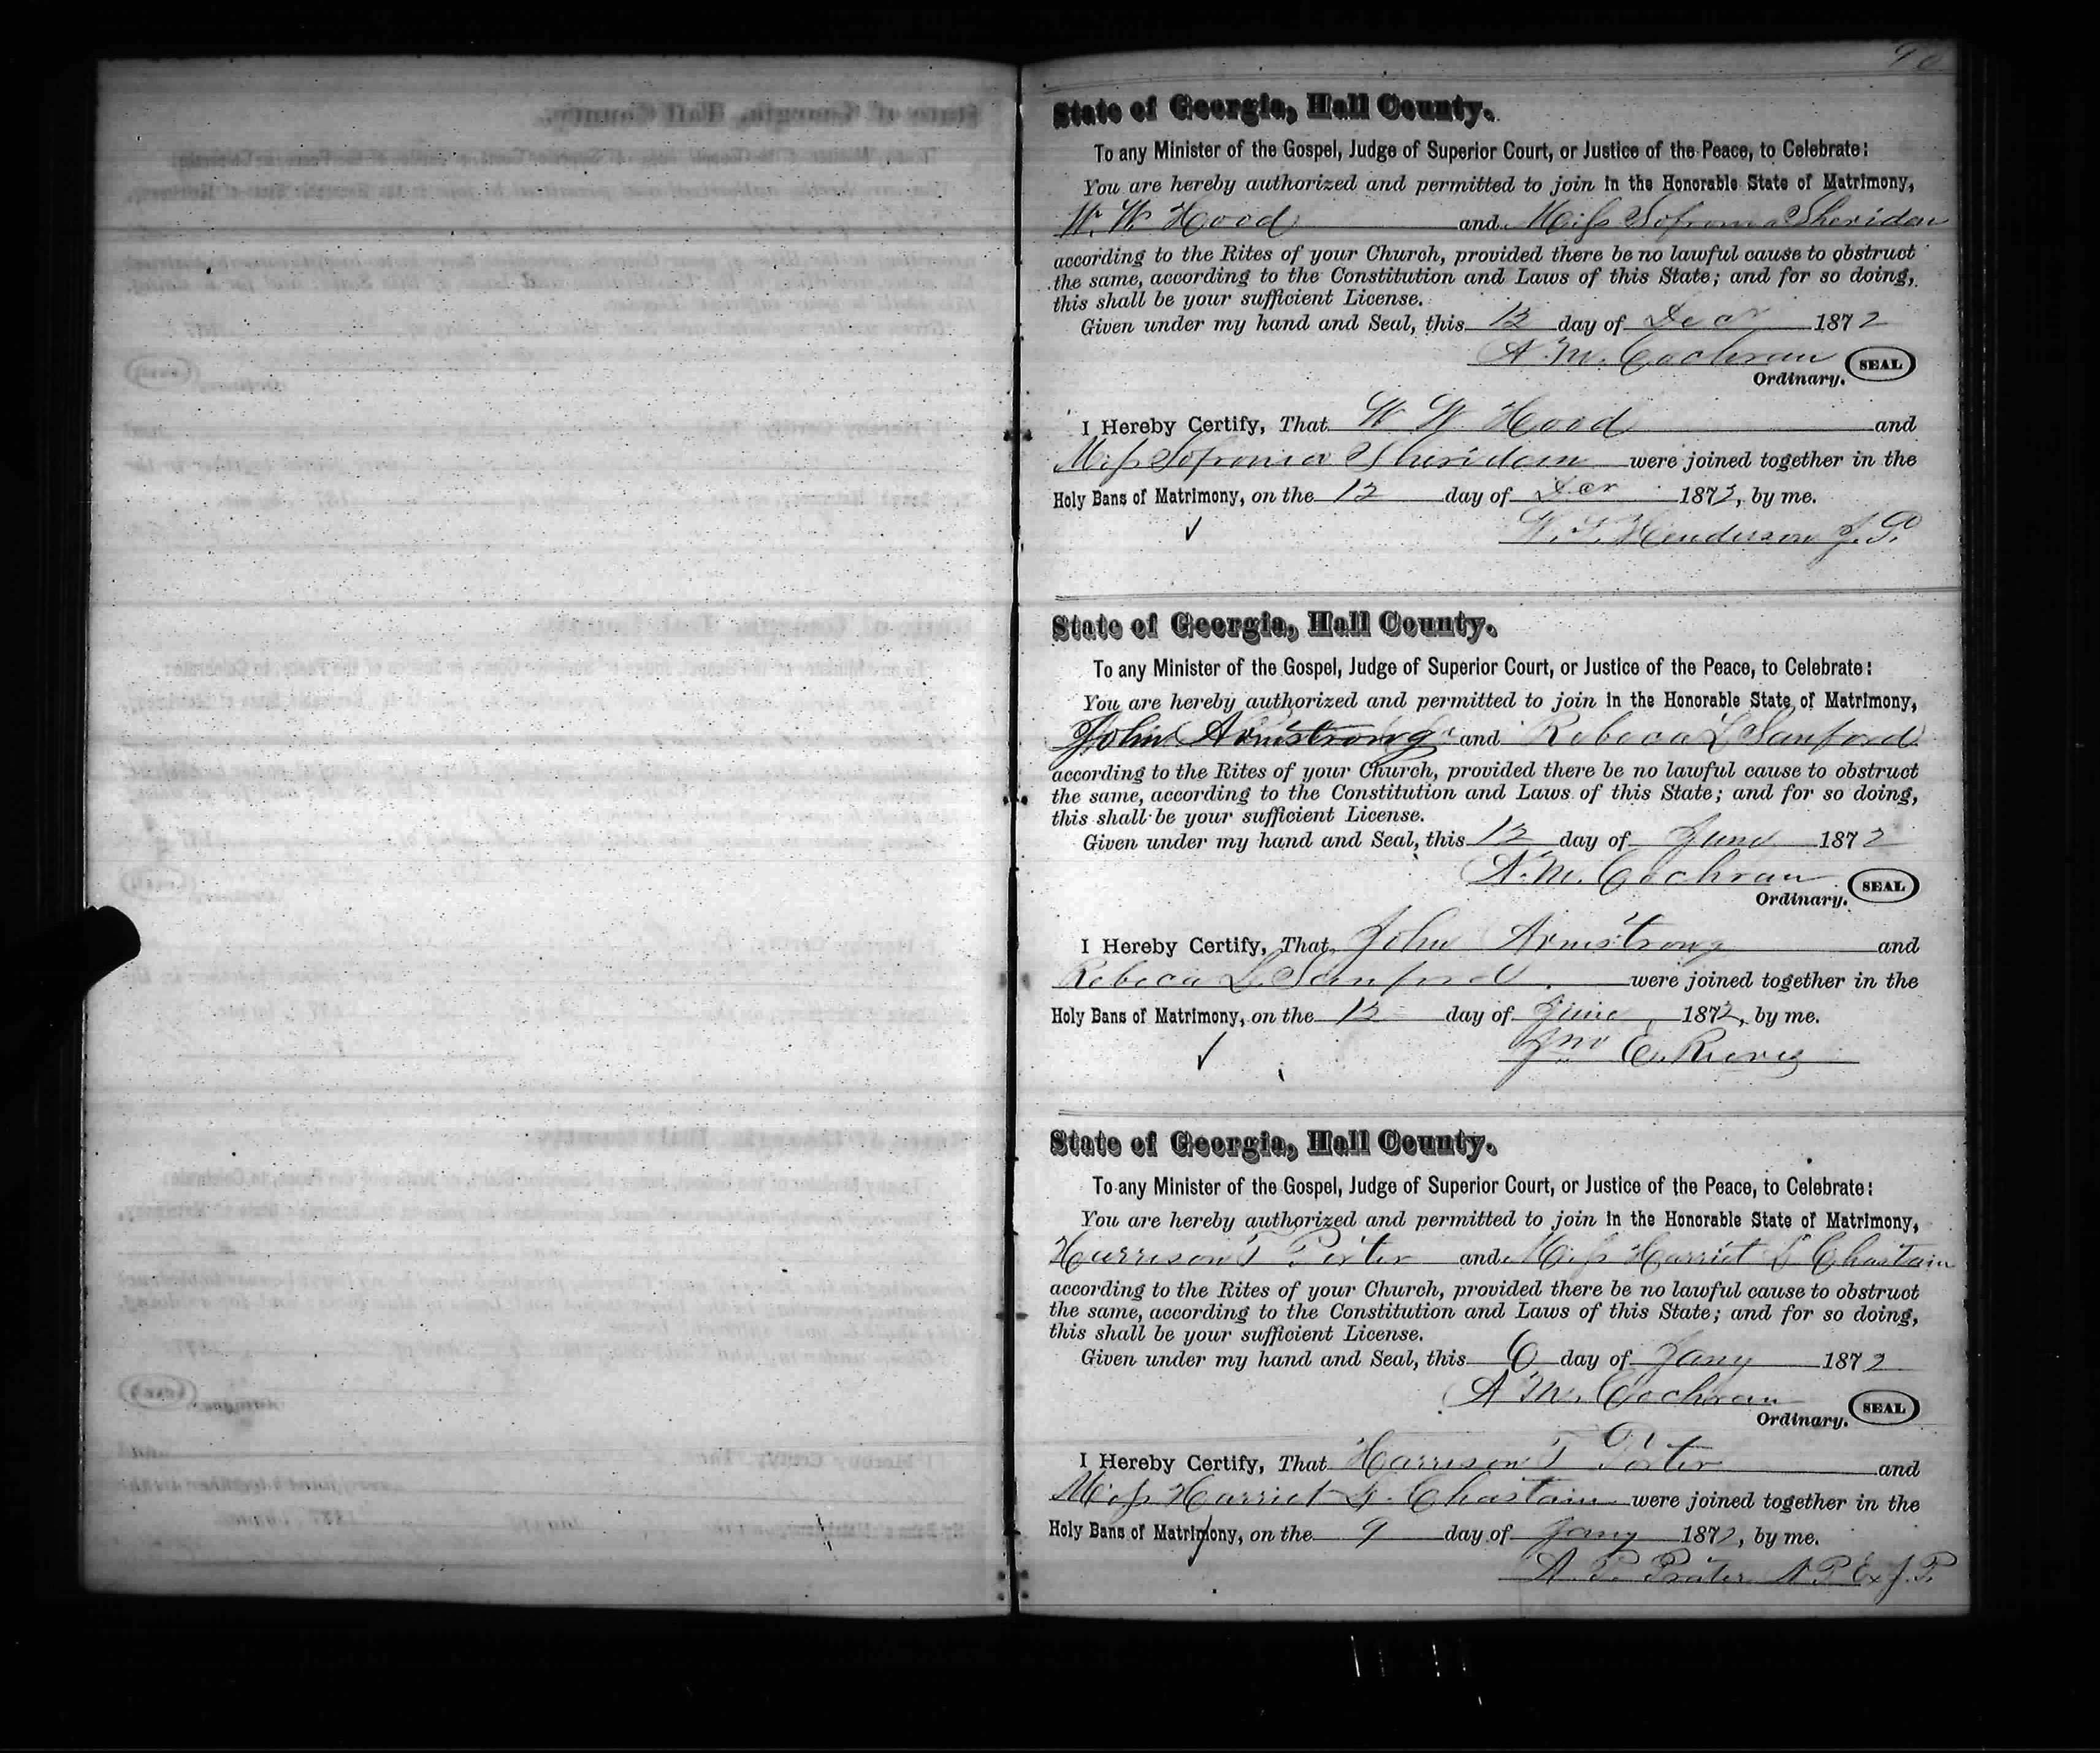 State of Georgia, Hall County.
To any Minister of the Gospel, Judge of Superior Court, or Justice of the Peace, to Celebrate:
You are hereby authorized and permitted to join in the Honorable State of Matrimony,
W. W. Hood and Miss Sofronia Sheridan
according to the Rites of your Church, provided there be no lawful cause to obstruct
the same, according to the Constitution and Laws of this State; and for so doing,
this shall be your sufficient License.
Given under my hand and Seal, this 12 day of Decr 1872
A. M. Cochran SEAL
Ordinary.
I Hereby Certify, That W W Hood and
Miss Sofronia Sheridan were joined together in the
Holy Bans of Matrimony, on the 12 day of Decr 1872, by me.
Henderson J. P.
State of Georgia, Hall County.
To any Minister of the Gospel, Judge of Superior Court, or Justice of the Peace, to Celebrate:
You are hereby authorized and permitted to join in the Honorable State of Matrimony,
John Armstrong and Rebeca L Sanford
according to the Rites of your Church, provided there be no lawful cause to obstruct
the same, according to the Constitution and Laws of this State; and for so doing,
this shall be your sufficient License.
Given under my hand and Seal, this 12 day of June 1872
A. M. Cochran SEAL
Ordinary.
I Hereby Certify, That John Armstrong and
Rebeca L. Sanford were joined together in the
Holy Bans of Matrimony, on the 12 day of June 1872, by me.
Jno
State of Georgia, Hall County.
To any Minister of the Gospel, Judge of Superior Court, or Justice of the Peace, to Celebrate:
You are hereby authorized and permitted to join in the Honorable State of Matrimony,
Harrison T Porter and Miss Harriet Chastain
according to the Rites of your Church, provided there be no lawful cause to obstruct
the same, according to the Constitution and Laws of this State; and for so doing,
this shall be your sufficient License.
Given under my hand and Seal, this 6 day of Jany 1872
A M. Cochran SEAL
Ordinary.
I Hereby Certify, That Harrison T Porter and
Miss Harriet Chastain were joined together in the
Holy Bans of Matrimony, on the 9 day of Jany 1872, by me.
A. P. Prater N P Ex J. P.